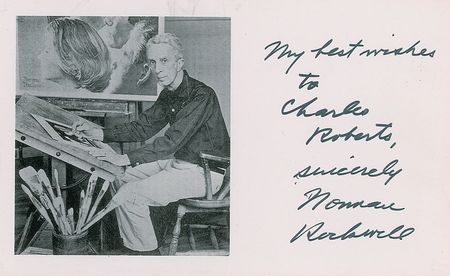 My best wishes
to
Charles
Roberts,
sincerely
Norman
Rockwell